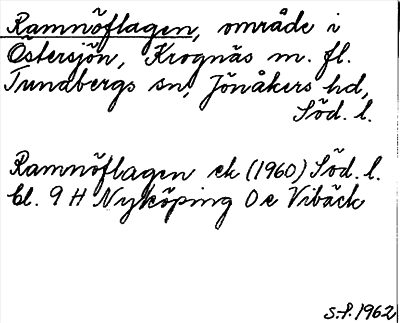 Ramnöflagen, område i
Östersjön, Krognäs m. fl.
Tunabergs sn, Jönåkers hd,
Söd. l.
Ramnöflagen ek (1960) Söd. l.
bl. 9 H Nyköping 0 e Vibäck
S-P. 1962